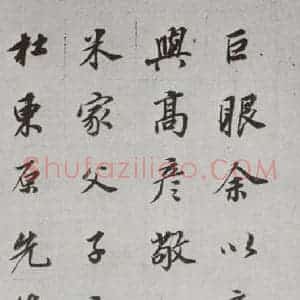 巨眼余以
與高彦敬
米家父子
杜東原先
Shufaziliao.COM